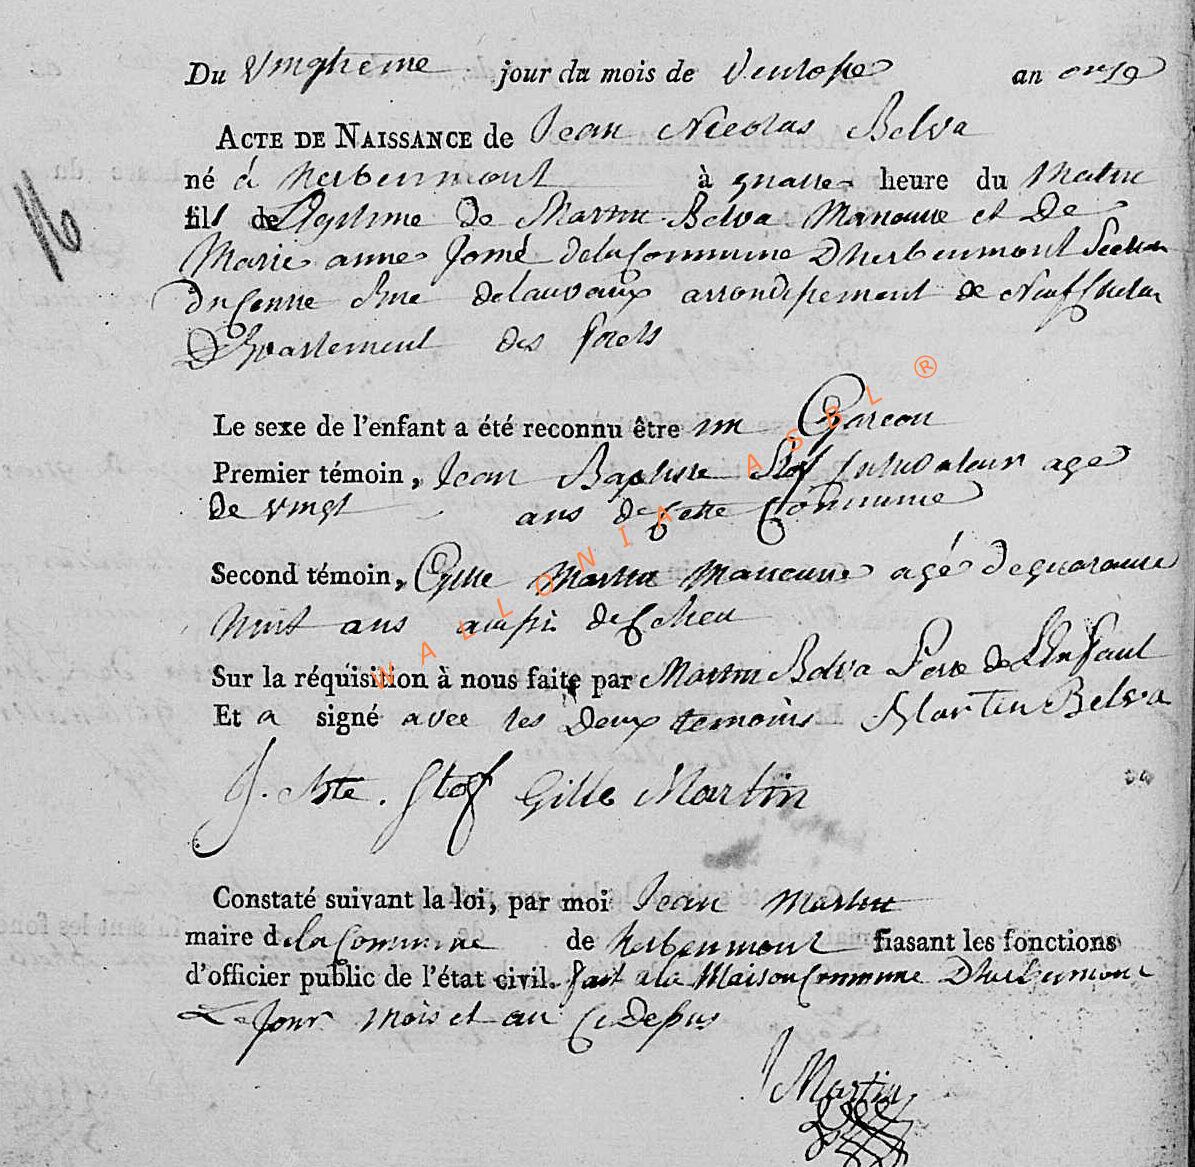 Du Vingtieme jour du mois de Ventose an onze
ACTE DE NAISSANCE de Jean Nicolas Belva
né à herbeumont à quatre heure du Matin
16
fils de Legitime de Martin Belva Manouvre et De
Marie anne Jomé de la Commune Dherbeumont
arrondissement de Neufchateau
Departement des forets
Le sexe de l'enfant a été reconnu être un Garcon
Premier témoin, Jean Baptiste Stof Cultivateur age
De vingt ans de Cette Commune
Second témoin, Gille Martin Manouvre agé de quarante
huit ans aussi de
Sur la réquisition à nous faite par Martin Belva Pere de L'Enfant
Et a signé avec les Deux temoins Martin Belva
J. Bte. Stof Gille Martin
Constaté suivant la loi, par moi Jean Martin
maire de la Commune de herbeumont fiasant les fonctions
d'officier public de l'état civil. fait a la Maison Commune Dherbeumont
Le Jour Mois et an Ci Desus
J Martin
WALLONIA ASBL ®